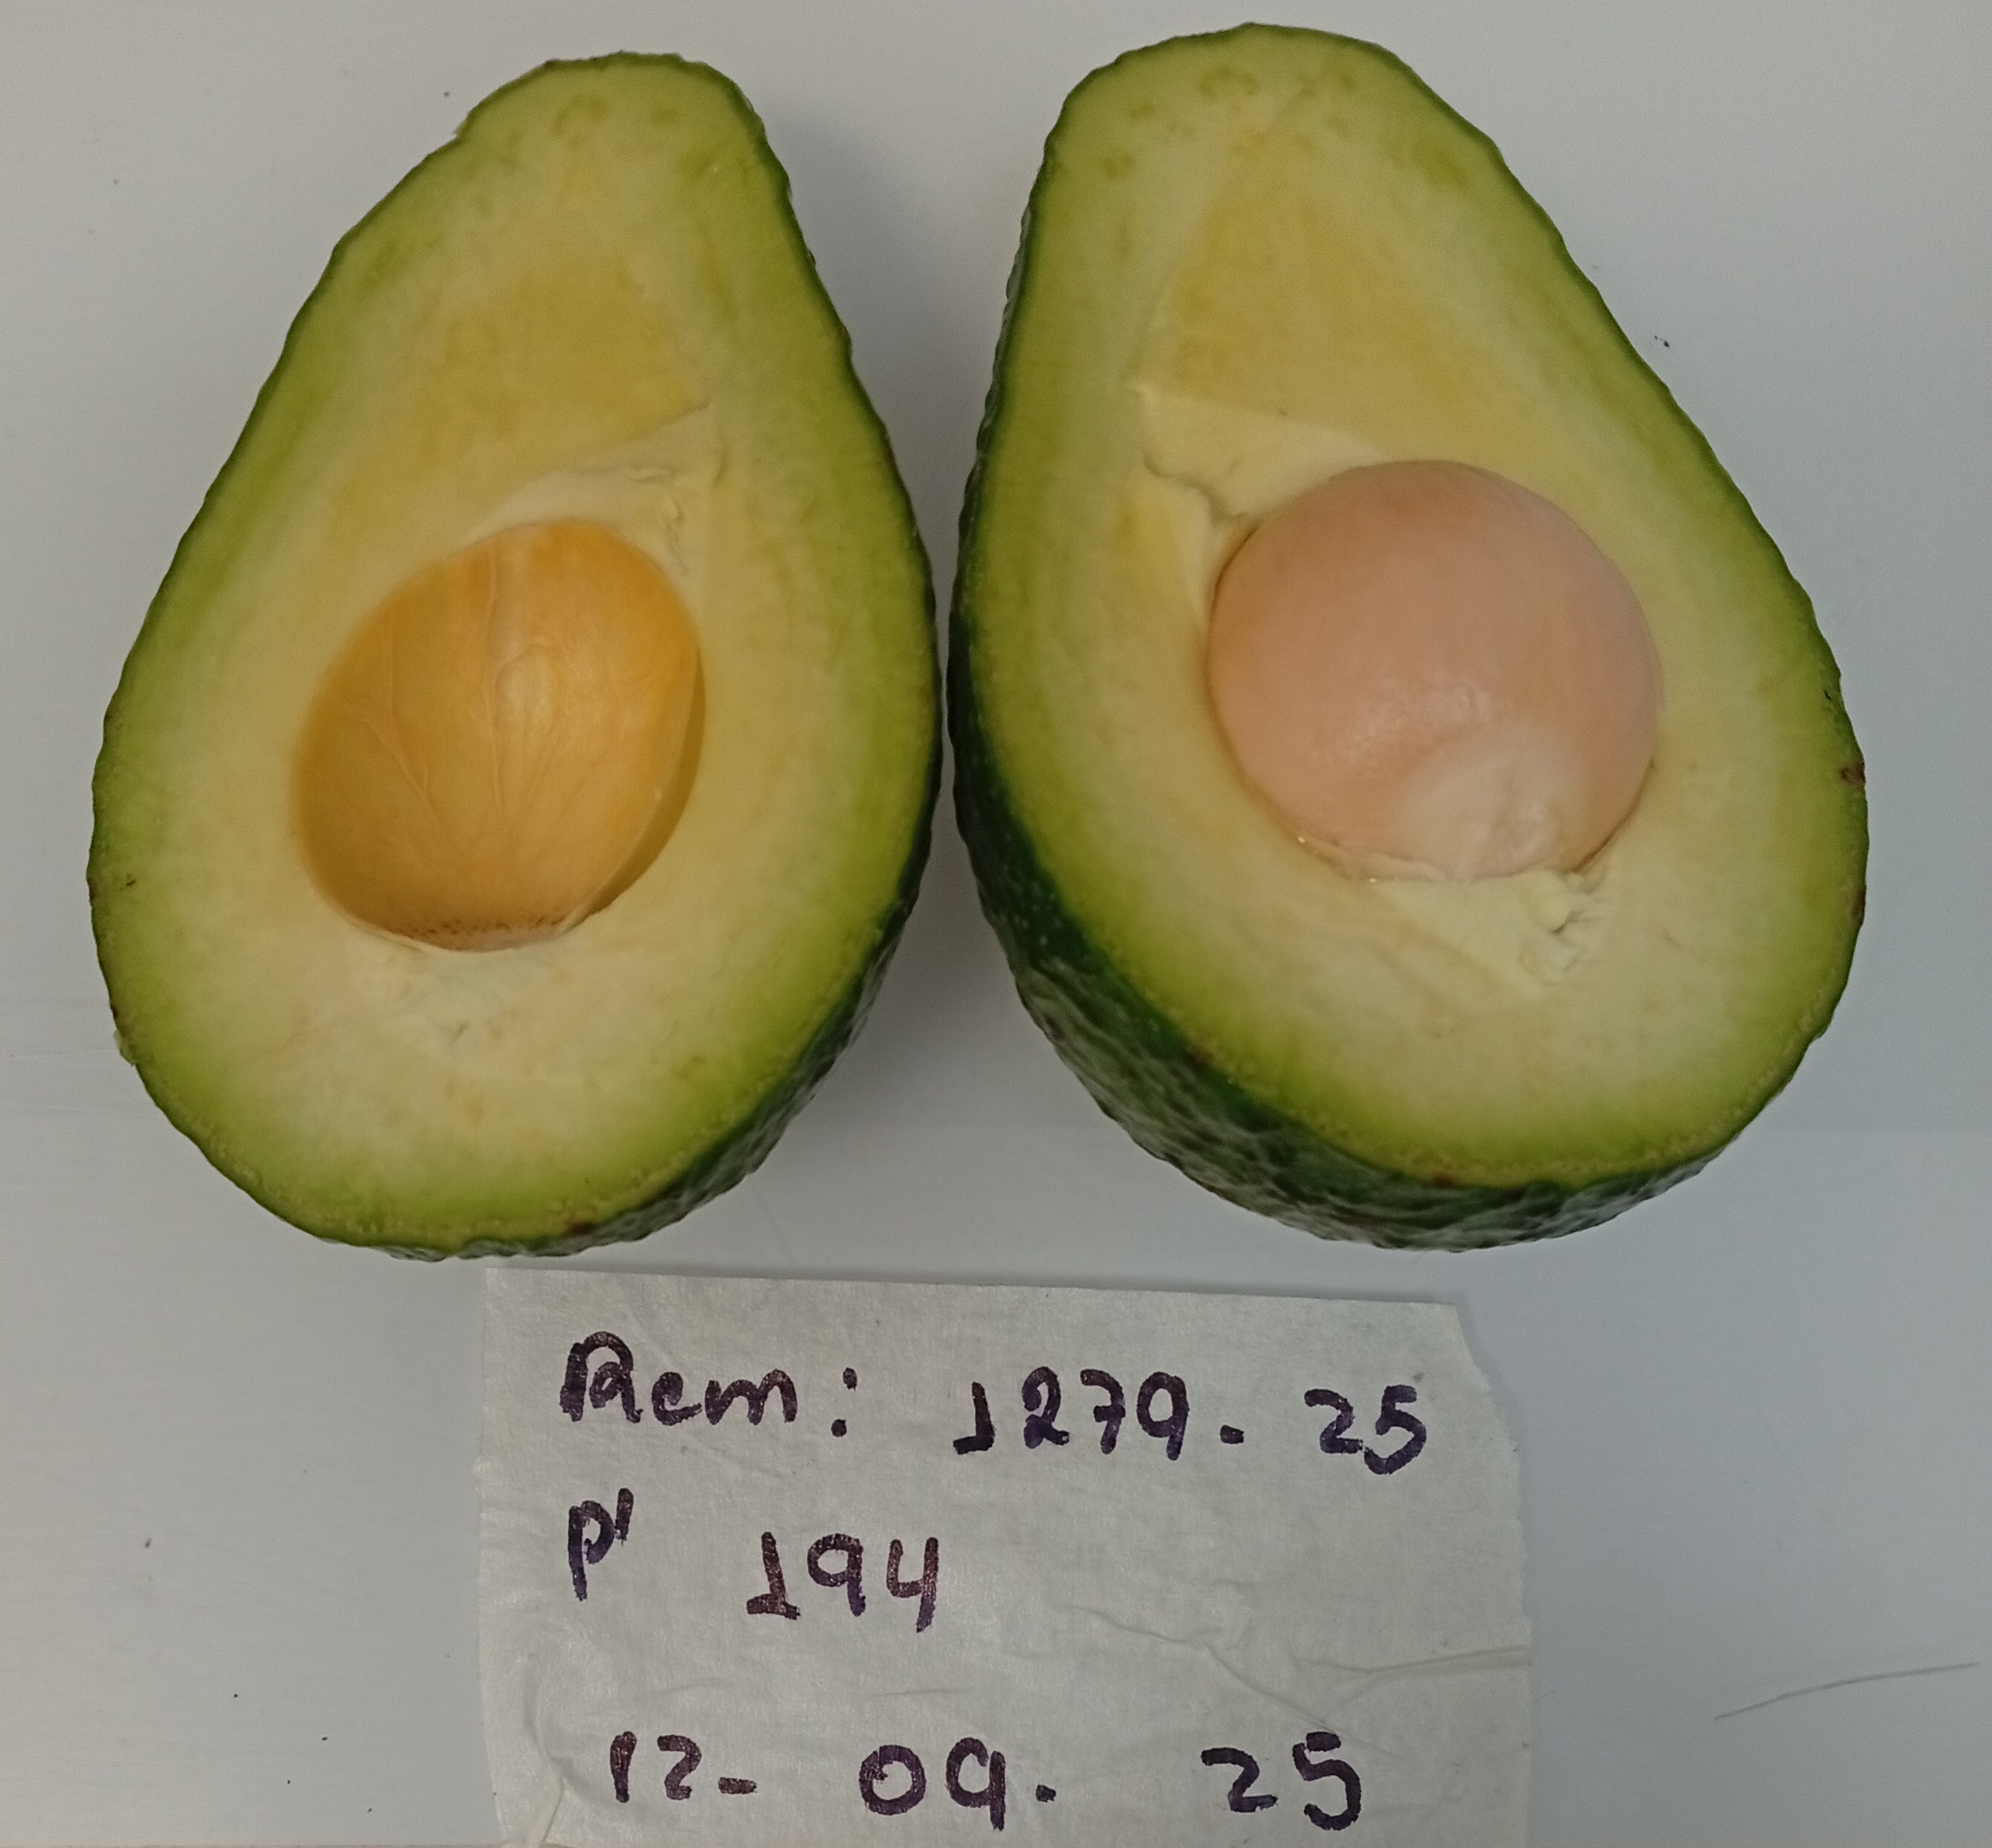 Rem: 1279. 25
P' 194
12- 09. 25